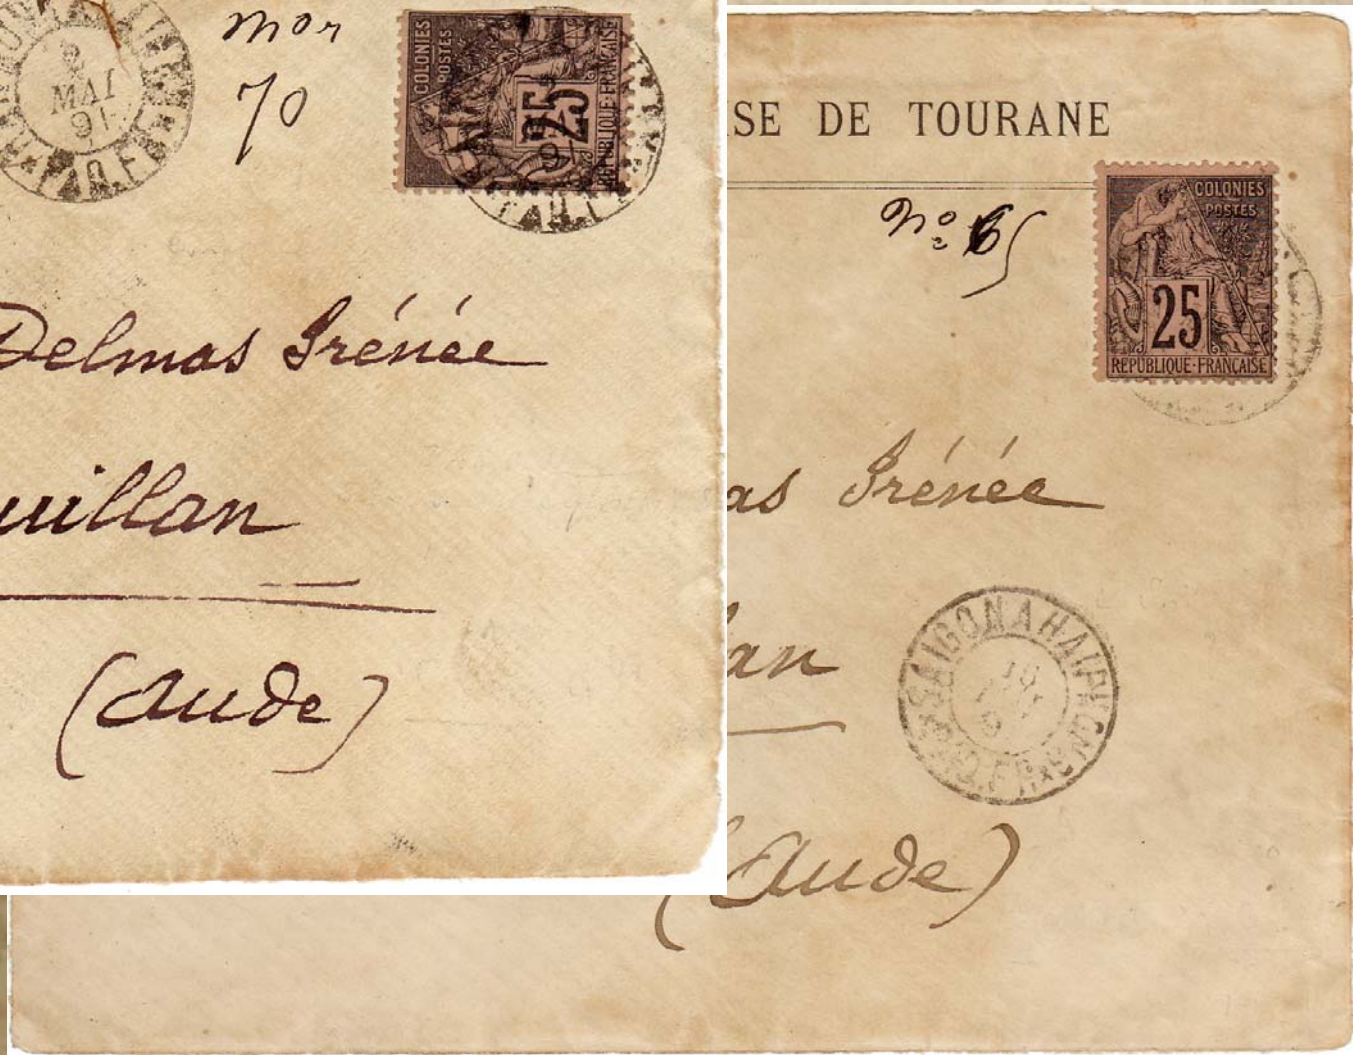 2
MAI
91
mor
70
COLONIES
POSTES
25
REPUBLIQUE·FRANÇAISE
Delmas Irénée
uillan
(Aude)
ISE DE TOURANE
No. 65
COLONIES
POSTES
25
REPUBLIQUE·FRANÇAISE
as Irénée
lan
SAIGON A HAIPHONG
(Aude)